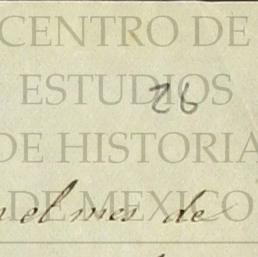 CENTRO DE
ESTUDIOS
26
DE HISTORIA
DE MEXICO
el mes de